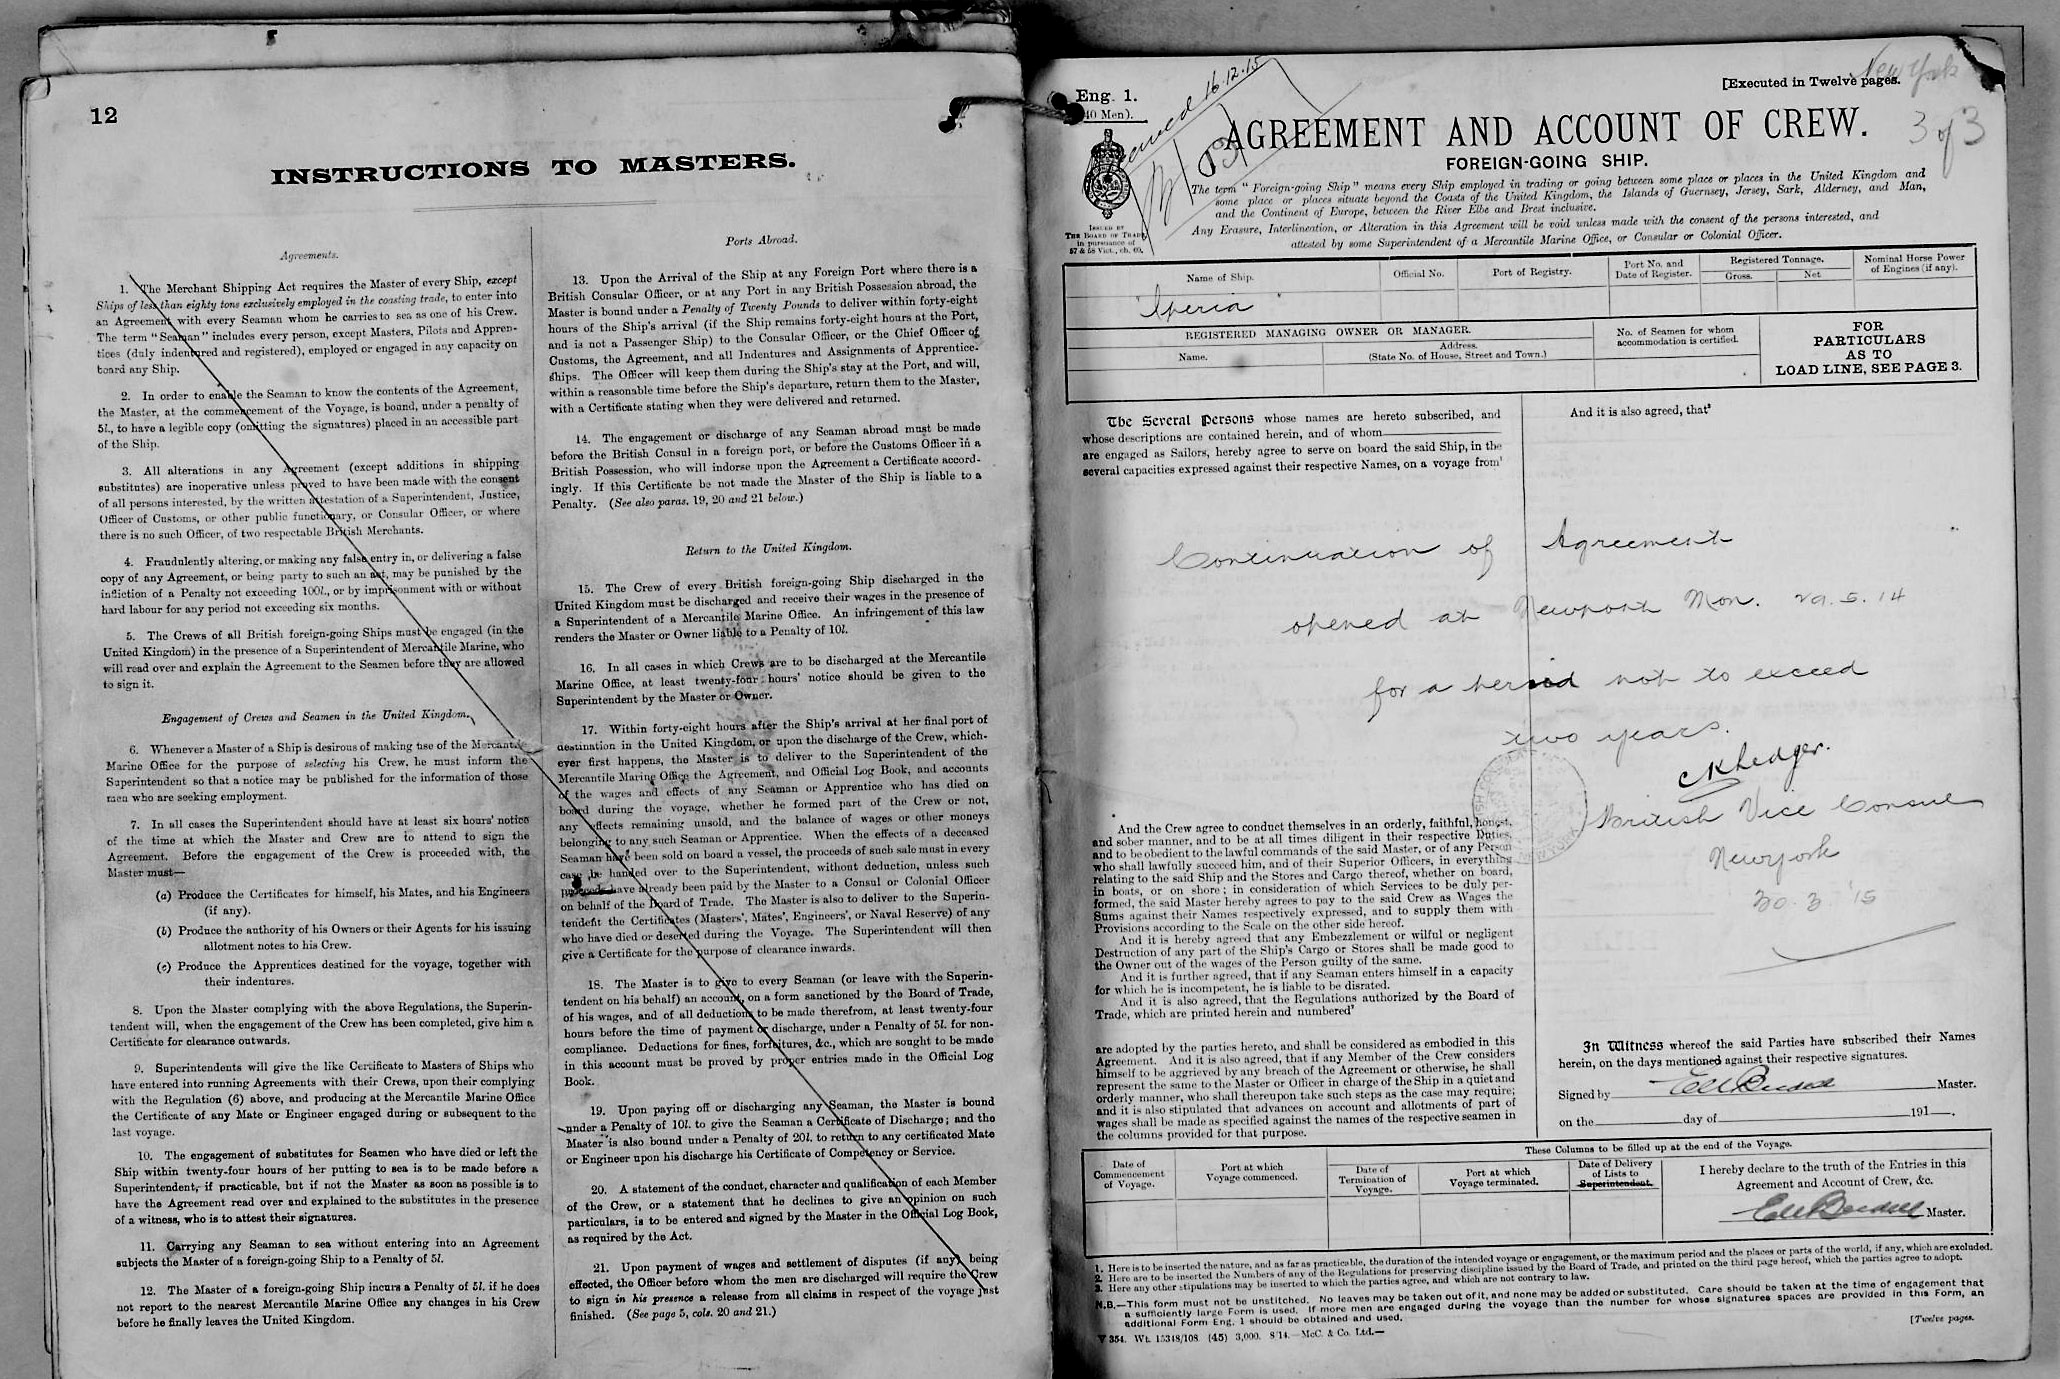 12
INSTRUCTIONS TO MASTERS.
Agreements.
1. The Merchant Shipping Act requires the Master of every Ship, except
Ships of less than eighty tons exclusively employed in the coasting trade, to enter into
an Agreement with every Seaman whom he carries to sea as one of his Crew.
The term "Seaman" includes every person, except Masters, Pilots and Appren-
tices (duly indentured and registered), employed or engaged in any capacity on
board any Ship.
2. In order to enable the Seaman to know the contents of the Agreement,
the Master, at the commencement of the Voyage, is bound, under a penalty of
5l., to have a legible copy (omitting the signatures) placed in an accessible part
of the Ship.
3. All alterations in any Agreement (except additions in shipping
substitutes) are inoperative unless proved to have been made with the consent
of all persons interested, by the written attestation of a Superintendent, Justice,
Officer of Customs, or other public functionary, or Consular Officer, or where
there is no such Officer, of two respectable British Merchants.
4. Fraudulently altering, or making any false entry in, or delivering a false
copy of any Agreement, or being party to such an act, may be punished by the
infliction of a Penalty not exceeding 100l., or by imprisonment with or without
hard labour for any period not exceeding six months.
5. The Crews of all British foreign-going Ships must be engaged (in the
United Kingdom) in the presence of a Superintendent of Mercantile Marine, who
will read over and explain the Agreement to the Seamen before they are allowed
to sign it.
Engagement of Crews and Seamen in the United Kingdom.
6. Whenever a Master of a Ship is desirous of making use of the Mercantile
Marine Office for the purpose of selecting his Crew, he must inform the
Superintendent so that a notice may be published for the information of those
men who are seeking employment.
7. In all cases the Superintendent should have at least six hours' notice
of the time at which the Master and Crew are to attend to sign the
Agreement. Before the engagement of the Crew is proceeded with, the
Master must—
(a) Produce the Certificates for himself, his Mates, and his Engineers
(if any).
(b) Produce the authority of his Owners or their Agents for his issuing
allotment notes to his Crew.
(c) Produce the Apprentices destined for the voyage, together with
their indentures.
8. Upon the Master complying with the above Regulations, the Superin-
tendent will, when the engagement of the Crew has been completed, give him a
Certificate for clearance outwards.
9. Superintendents will give the like Certificate to Masters of Ships who
have entered into running Agreements with their Crews, upon their complying
with the Regulation (6) above, and producing at the Mercantile Marine Office
the Certificate of any Mate or Engineer engaged during or subsequent to the
last voyage.
10. The engagement of substitutes for Seamen who have died or left the
Ship within twenty-four hours of her putting to sea is to be made before a
Superintendent, if practicable, but if not the Master as soon as possible is to
have the Agreement read over and explained to the substitutes in the presence
of a witness, who is to attest their signatures.
11. Carrying any Seaman to sea without entering into an Agreement
subjects the Master of a foreign-going Ship to a Penalty of 5l.
12. The Master of a foreign-going Ship incurs a Penalty of 5l. if he does
not report to the nearest Mercantile Marine Office any changes in his Crew
before he finally leaves the United Kingdom.
Ports Abroad.
13. Upon the Arrival of the Ship at any Foreign Port where there is a
British Consular Officer, or at any Port in any British Possession abroad, the
Master is bound under a Penalty of Twenty Pounds to deliver within forty-eight
hours of the Ship's arrival (if the Ship remains forty-eight hours at the Port,
and is not a Passenger Ship) to the Consular Officer, or the Chief Officer of
Customs, the Agreement, and all Indentures and Assignments of Apprentice-
ships. The Officer will keep them during the Ship's stay at the Port, and will,
within a reasonable time before the Ship's departure, return them to the Master,
with a Certificate stating when they were delivered and returned.
14. The engagement or discharge of any Seaman abroad must be made
before the British Consul in a foreign port, or before the Customs Officer in a
British Possession, who will indorse upon the Agreement a Certificate accord-
ingly. If this Certificate be not made the Master of the Ship is liable to a
Penalty. (See also paras. 19, 20 and 21 below.)
Return to the United Kingdom.
15. The Crew of every British foreign-going Ship discharged in the
United Kingdom must be discharged and receive their wages in the presence of
a Superintendent of a Mercantile Marine Office. An infringement of this law
renders the Master or Owner liable to a Penalty of 10l.
16. In all cases in which Crews are to be discharged at the Mercantile
Marine Office, at least twenty-four hours' notice should be given to the
Superintendent by the Master or Owner.
17. Within forty-eight hours after the Ship's arrival at her final port of
destination in the United Kingdom, or upon the discharge of the Crew, which-
ever first happens, the Master is to deliver to the Superintendent of the
Mercantile Marine Office the Agreement, and Official Log Book, and accounts
of the wages and effects of any Seaman or Apprentice who has died on
board during the voyage, whether he formed part of the Crew or not,
any effects remaining unsold, and the balance of wages or other moneys
belonging to any such Seaman or Apprentice. When the effects of a deceased
Seaman have been sold on board a vessel, the proceeds of such sale must in every
case be handed over to the Superintendent, without deduction, unless such
proceeds have already been paid by the Master to a Consul or Colonial Officer
on behalf of the Board of Trade. The Master is also to deliver to the Superin-
tendent the Certificates (Masters', Mates', Engineers', or Naval Reserve) of any
who have died or deserted during the Voyage. The Superintendent will then
give a Certificate for the purpose of clearance inwards.
18. The Master is to give to every Seaman (or leave with the Superin-
tendent on his behalf) an account, on a form sanctioned by the Board of Trade,
of his wages, and of all deductions to be made therefrom, at least twenty-four
hours before the time of payment or discharge, under a Penalty of 5l. for non-
compliance. Deductions for fines, forfeitures, &c., which are sought to be made
in this account must be proved by proper entries made in the Official Log
Book.
19. Upon paying off or discharging any Seaman, the Master is bound
under a Penalty of 10l. to give the Seaman a Certificate of Discharge; and the
Master is also bound under a Penalty of 20l. to return to any certificated Mate
or Engineer upon his discharge his Certificate of Competency or Service.
20. A statement of the conduct, character and qualification of each Member
of the Crew, or a statement that he declines to give an opinion on such
particulars, is to be entered and signed by the Master in the Official Log Book,
as required by the Act.
21. Upon payment of wages and settlement of disputes (if any) being
effected, the Officer before whom the men are discharged will require the Crew
to sign in his presence a release from all claims in respect of the voyage just
finished. (See page 5, cols. 20 and 21.)
New York
[Executed in Twelve pages.
Eng. 1.
(40 Men).
16.12.15
AGREEMENT AND ACCOUNT OF CREW.
3 of 3
FOREIGN-GOING SHIP.
The term "Foreign-going Ship" means every Ship employed in trading or going between some place or places in the United Kingdom and
some place or places situate beyond the Coasts of the United Kingdom, the Islands of Guernsey, Jersey, Sark, Alderney, and Man,
and the Continent of Europe, between the River Elbe and Brest inclusive.
Any Erasure, Interlineation, or Alteration in this Agreement will be void unless made with the consent of the persons interested, and
attested by some Superintendent of a Mercantile Marine Office, or Consular or Colonial Officer.
ISSUED BY
THE BOARD OF TRADE
in pursuance of
57 & 58 VICT., ch. 60.
Name of Ship.
Official No.
Port of Registry.
Port No. and
Date of Register.
Registered Tonnage.
Gross.
Net
Nominal Horse Power
of Engines (if any).
"Iberia"
REGISTERED MANAGING OWNER OR MANAGER.
Name.
Address.
(State No. of House, Street and Town.)
No. of Seamen for whom
accommodation is certified.
FOR
PARTICULARS
AS TO
LOAD LINE, SEE PAGE 3.
The Several Persons whose names are hereto subscribed, and
whose descriptions are contained herein, and of whom
are engaged as Sailors, hereby agree to serve on board the said Ship, in the
several capacities expressed against their respective Names, on a voyage from¹
And it is also agreed, that³
Continuation of Agreement
opened at Newport Mon. 29.5.14
for a period not to exceed
two years.
CK Ledger.
British Vice Consul
New york
30.3.'15
And the Crew agree to conduct themselves in an orderly, faithful, honest,
and sober manner, and to be at all times diligent in their respective Duties,
and to be obedient to the lawful commands of the said Master, or of any Person
who shall lawfully succeed him, and of their Superior Officers, in everything
relating to the said Ship and the Stores and Cargo thereof, whether on board,
in boats, or on shore; in consideration of which Services to be duly per-
formed, the said Master hereby agrees to pay to the said Crew as Wages the
Sums against their Names respectively expressed, and to supply them with
Provisions according to the Scale on the other side hereof.
And it is hereby agreed that any Embezzlement or wilful or negligent
Destruction of any part of the Ship's Cargo or Stores shall be made good to
the Owner out of the wages of the Person guilty of the same.
And it is further agreed, that if any Seaman enters himself in a capacity
for which he is incompetent, he is liable to be disrated.
And it is also agreed, that the Regulations authorized by the Board of
Trade, which are printed herein and numbered²
are adopted by the parties hereto, and shall be considered as embodied in this
Agreement. And it is also agreed, that if any Member of the Crew considers
himself to be aggrieved by any breach of the Agreement or otherwise, he shall
represent the same to the Master or Officer in charge of the Ship in a quiet and
orderly manner, who shall thereupon take such steps as the case may require;
and it is also stipulated that advances on account and allotments of part of
wages shall be made as specified against the names of the respective seamen in
the columns provided for that purpose.
In Witness whereof the said Parties have subscribed their Names
herein, on the days mentioned against their respective signatures.
Signed by Master.
on the day of 191 .
These Columns to be filled up at the end of the Voyage.
Date of
Commencement
of Voyage.
Port at which
Voyage commenced.
Date of
Termination of
Voyage.
Port at which
Voyage terminated.
Date of Delivery
of Lists to
Superintendent.
I hereby declare to the truth of the Entries in this
Agreement and Account of Crew, &c.
Master.
1. Here is to be inserted the nature, and as far as practicable, the duration of the intended voyage or engagement, or the maximum period and the places or parts of the world, if any, which are excluded.
2. Here are to be inserted the Numbers of any of the Regulations for preserving discipline issued by the Board of Trade, and printed on the third page hereof, which the parties agree to adopt.
3. Here any other stipulations may be inserted to which the parties agree, and which are not contrary to law.
N.B.—This form must not be unstitched. No leaves may be taken out of it, and none may be added or substituted. Care should be taken at the time of engagement that
a sufficiently large Form is used. If more men are engaged during the voyage than the number for whose signatures spaces are provided in this Form, an
additional Form Eng. 1 should be obtained and used.
[Twelve pages.
V 354. Wt. 15348/108 (45) 3,000. 8/14.—McC. & Co. Ltd.—